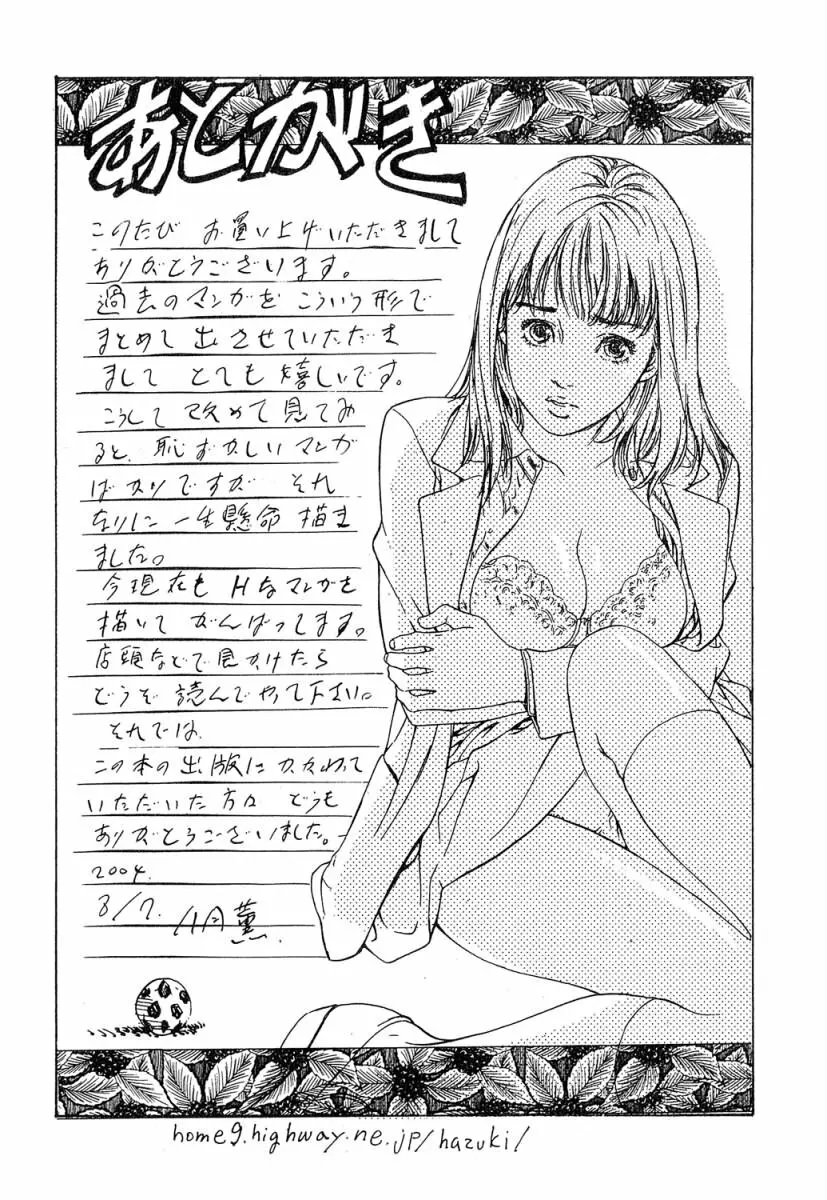 あとがき
このたび お買い上げいただきまして
ありがとうございます。
過去のマンガを こういう形で
まとめて 出させていただき
まして とても 嬉しいです。
こうして 改めて 見てみ
ると、恥ずかしい マンガ
ばかりですが それ
なりに 一生懸命 描き
ました。
今現在も Hなマンガを
描いて がんばってます。
店頭などで 見かけたら
どうぞ 読んでやって下さい。
それでは、
この本の出版に かかわって
いただいた 方々 どうも
ありがとうございました。
2004.
8/7. 八月薫.
home9.highway.ne.jp/hazuki/